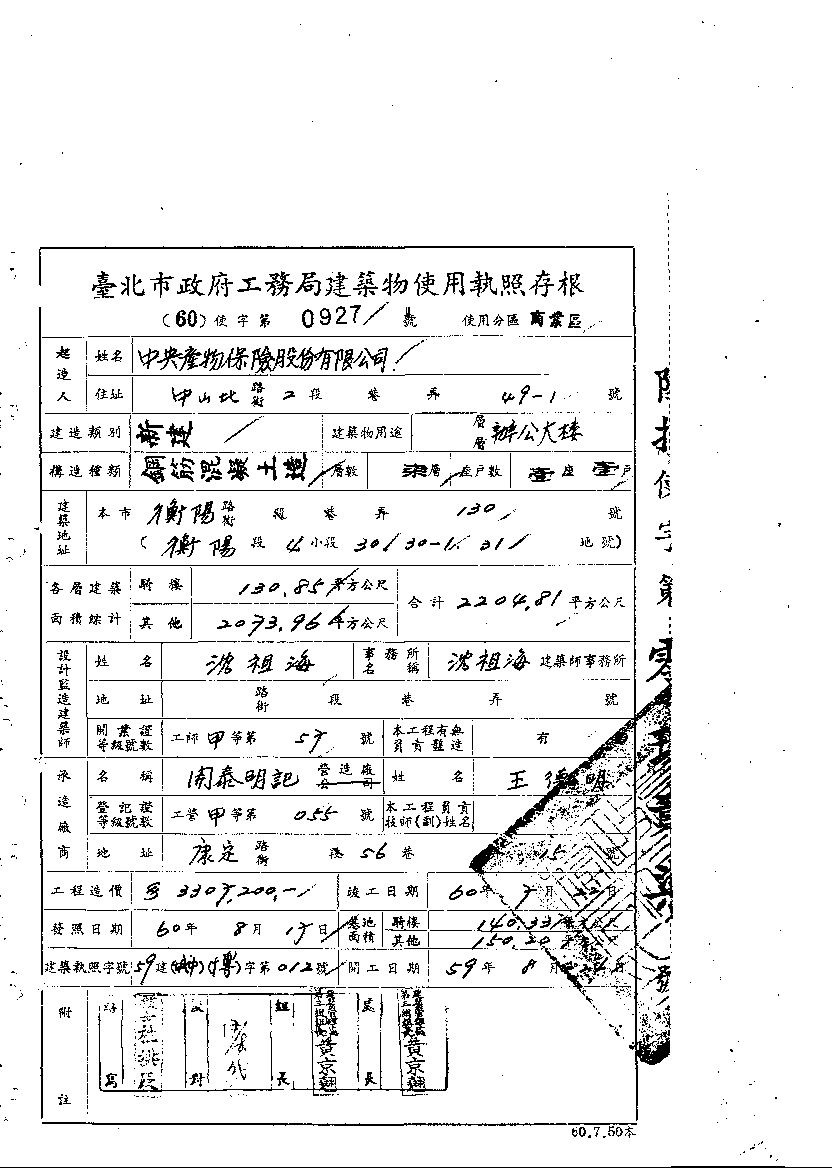 臺北市政府工務局建築物使用執照存根
(60)使字第 0927 號 使用分區 商業區
起造人 姓名 中央產物保險股份有限公司
住址 中山北 路街 2 段 巷 弄 49-1 號
建造類別 新建 建築物用途 層層 辦公大樓
構造種類 鋼筋混凝土造 層數 柒層 座戶數 壹座 壹戶
建築地址 本市 衡陽 路街 段 巷 弄 130 號
( 衡陽 段 4 小段 30/30-1/31/ 地號)
各層建築面積綜計 騎樓 130.85 平方公尺 合計 2204.81 平方公尺
其他 2073.96 平方公尺
設計監造建築師 姓名 沈祖海 事務所名稱 沈祖海 建築師事務所
地址 路街 段 巷 弄 號
開業證等級號數 工師 甲 等第 號 本工程有無員責監造 有
承造廠商 名稱 開泰明記 營造廠公司 姓名 王 明
登記證等級號數 工營 甲 等第 055 號 本工程員責技師(副)姓名
地址 康定 路街 段 56 巷 15 號
工程造價 330 ,200,- 竣工日期 60年 月 22日
發照日期 60年 8月 日 基地面積 騎樓 140.33 平方公尺
其他 150.20 平方公尺
建築執照字號 59建( )( )字第012號 開工日期 59年 8月 日
附註 繕寫 校對 組長 黃京翹 局長 黃京翹
60.7.50本